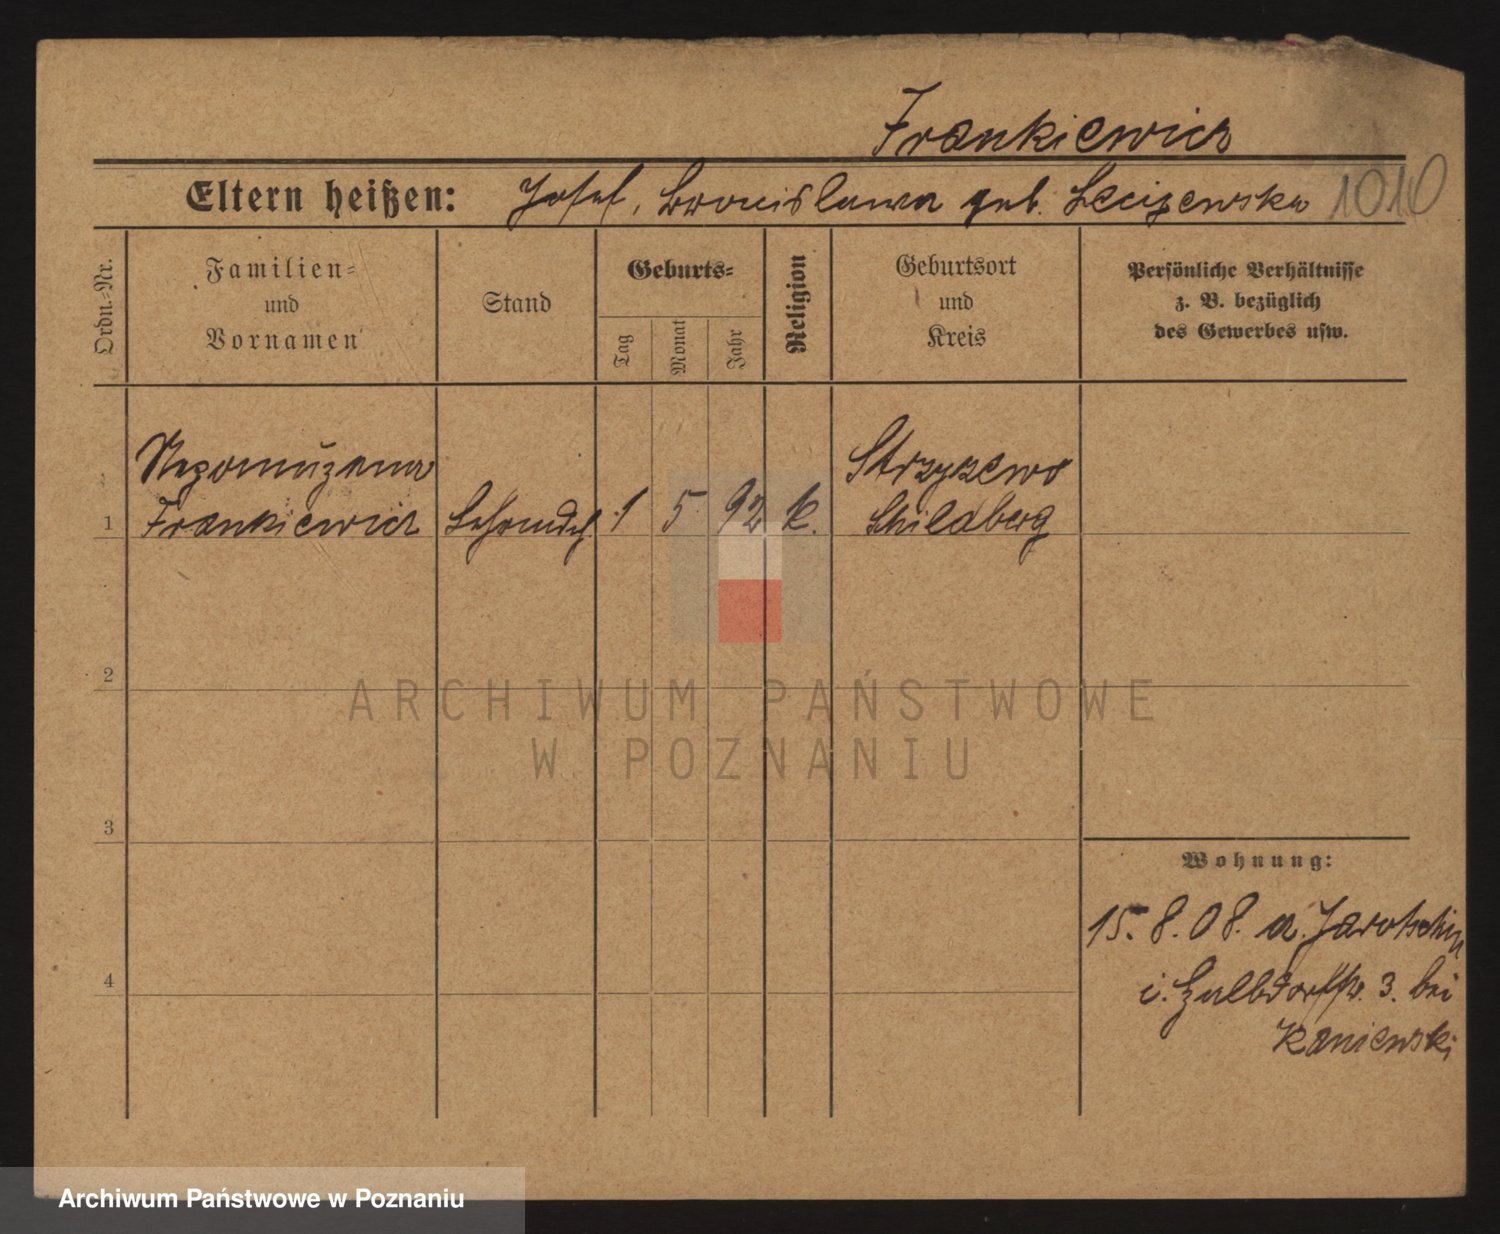 Frankiewicz
Eltern heißen: Josef, Bronislawa geb. Lecizewska 1010
Ordn.-Nr.
Familien-
und
Vornamen
Stand
Geburts-
Tag
Monat
Jahr
Religion
Geburtsort
und
Kreis
Persönliche Verhältnisse
z. B. bezüglich
des Gewerbes usw.
Nepomuzena
Strzyzewo
1 Frankiewicz 1 5 92 k. Schildberg
2
ARCHIWUM PAŃSTWOWE
W POZNANIU
3
Wohnung:
15.8.08. a. Jarotschin
4
i. 3. bei
Kaniewski
Archiwum Państwowe w Poznaniu